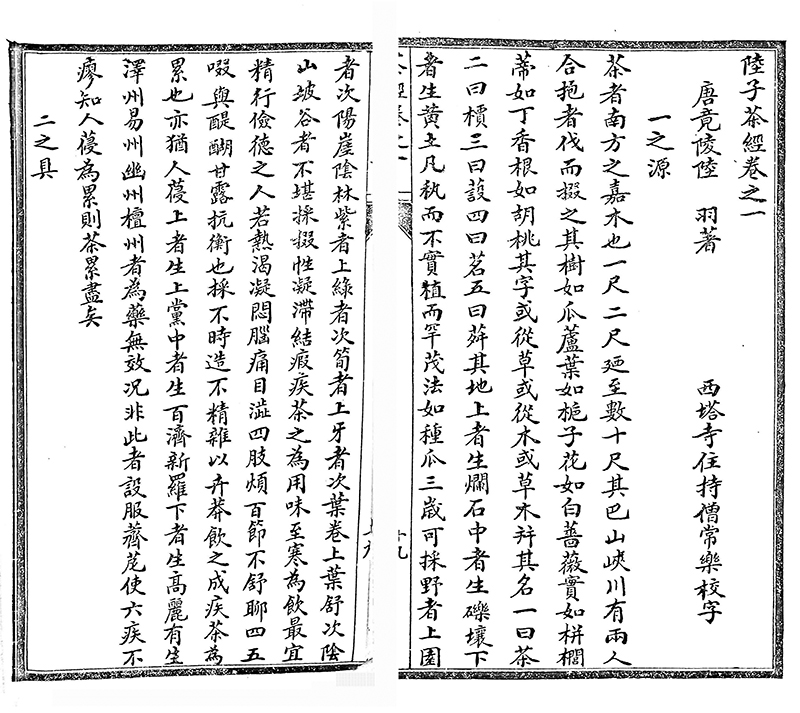 陸子茶經卷之一
唐竟陵陸 羽著 西塔寺住持僧常樂校字
一之源
茶者南方之嘉木也一尺二尺廼至數十尺其巴山峽川有兩人
合抱者伐而掇之其樹如瓜蘆葉如梔子花如白薔薇實如栟櫚
蒂如丁香根如胡桃其字或從草或從木或草木并其名一曰茶
二曰檟三曰蔎四曰茗五曰荈其地上者生爛石中者生礫壤下
者生黃土凡執而不實植而罕茂法如種瓜三歲可採野者上園
者次陽崖陰林紫者上綠者次筍者上牙者次葉卷上葉舒次陰
山坡谷者不堪採掇性凝滯結瘕疾茶之為用味至寒為飲最宜
精行儉德之人若熱渴凝悶腦痛目澁四肢煩百節不舒聊四五
啜與醍醐甘露抗衡也採不時造不精雜以卉莽飲之成疾茶為
累也亦猶人葠上者生上黨中者生百濟新羅下者生高麗有生
澤州易州幽州檀州者為藥無效況非此者設服薺苨使六疾不
瘳知人葠為累則茶累盡矣
二之具